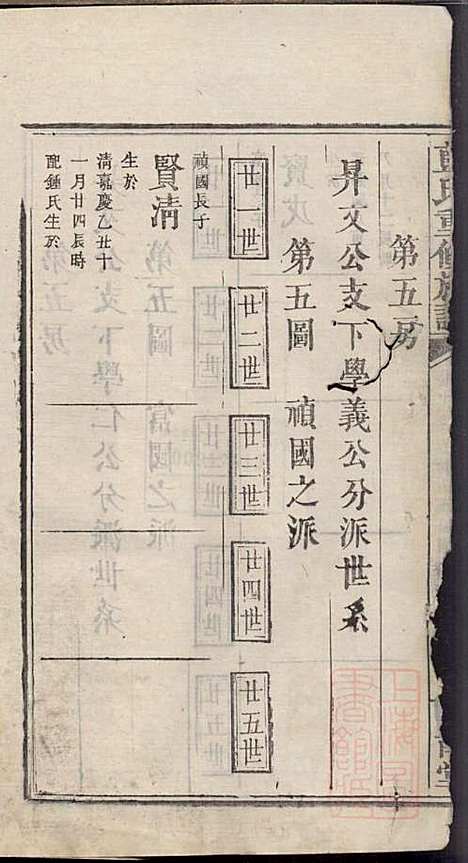 氏重修族譜
第五房
昇文公支下學義公分派世系
第五圖　禎國之派
廿一世
廿二世
廿三世
廿四世
廿五世
禎國長子
賢清
生於
清嘉慶乙丑十
一月廿四辰時
配鍾氏生於